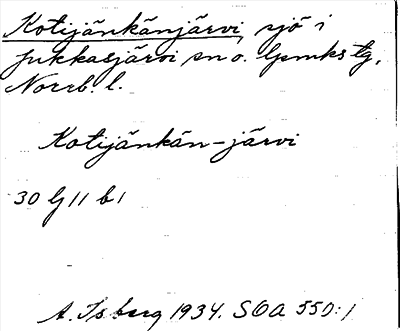 Kotijänkänjärvi, sjö i
Jukkasjärvi sn o. lpmks tg,
Norrb. l.
Kotijänkän-järvi
30 J 11 b 1
A. Isberg 1934. SOA 550:1